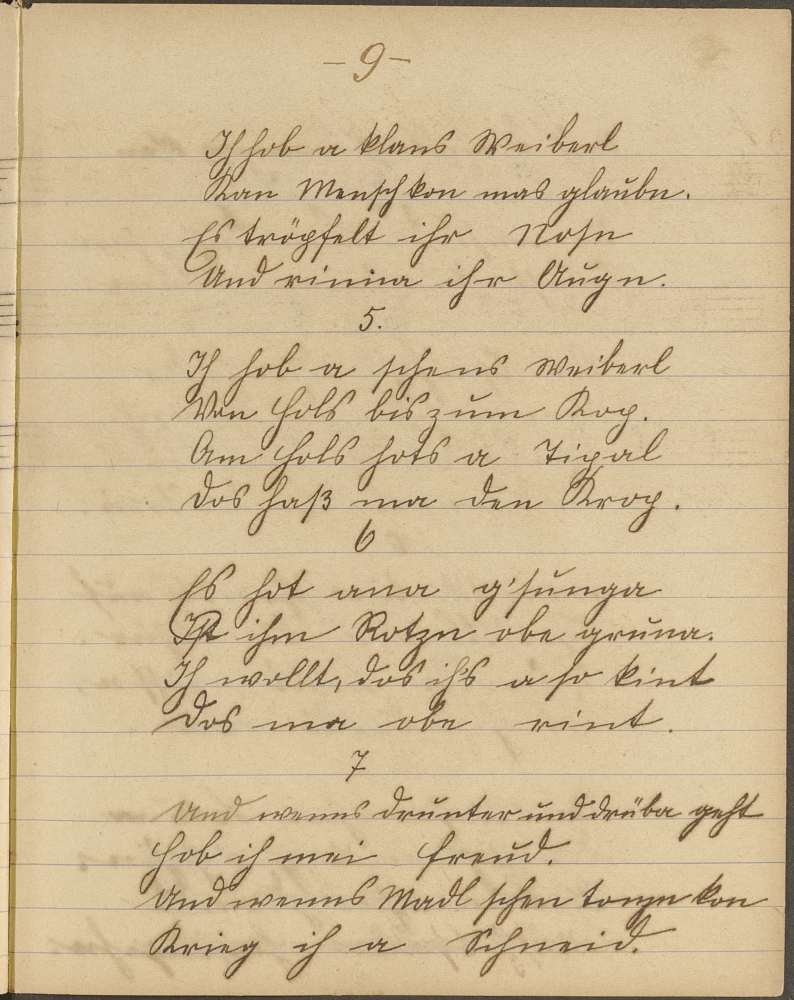 -9-
Ich hob a klans Weiberl
Kan Mensch kon mas glaubn.
Es tröpfelt ihr Nosn
Und rinna ihr Augn.
5.
Ich hob a schens Weiberl
Von Hols bis zum Kop.
Am Hols hots a Tipal
Dos haß ma den Krop.
6
Es hot ana g'sunga
Ist ihm Rotzn obe gruna.
Ich wollt, dos ichs a so kint
Dos ma obe rint.
7
Und wenns drunter und drüba geht
Hob ich mei Freud.
Und wenns Madl schen tonzn kon
Krieg ich a Schneid.